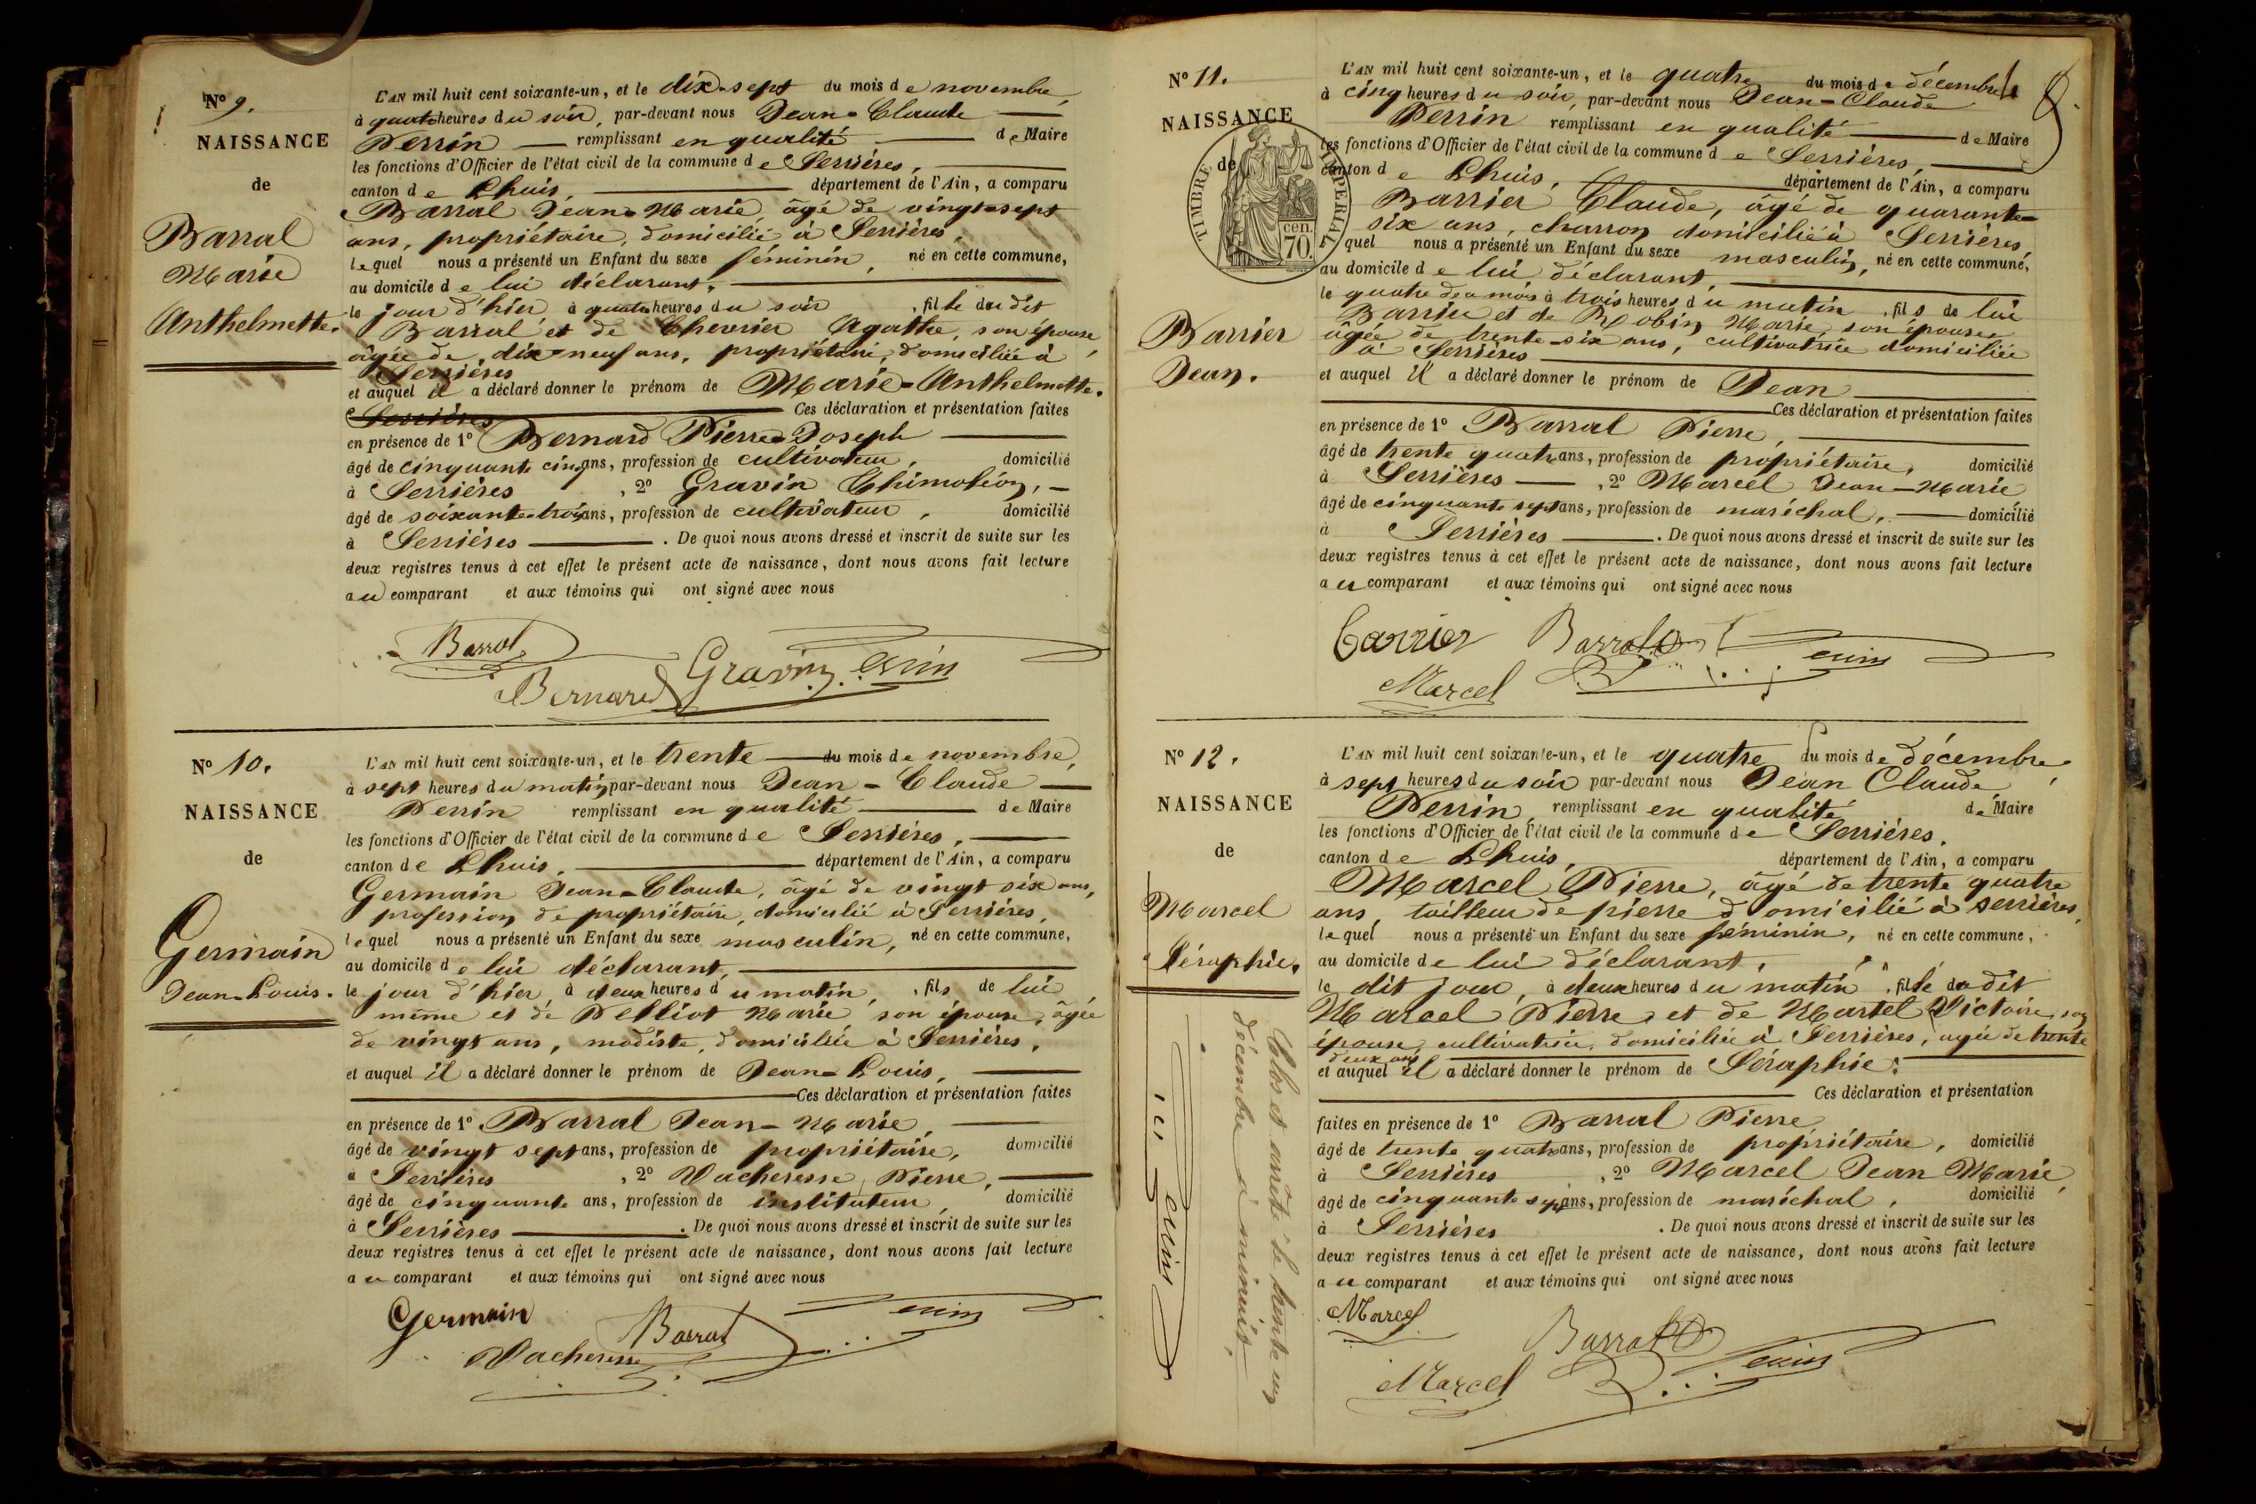 N° 9.
NAISSANCE
de
Barral
Marie
Anthelmette.
L'AN mil huit cent soixante-un, et le dix-sept du mois de novembre,
à quatre heures du soir, par-devant nous Jean-Claude
Perrin remplissant en qualité de Maire
les fonctions d'Officier de l'état civil de la commune de Serrières,
canton de Lhuis, département de l'Ain, a comparu
Barral Jean-Marie, âgé de vingt-sept
ans, propriétaire, domicilié à Serrières,
lequel nous a présenté un Enfant du sexe féminin, né en cette commune,
au domicile de lui déclarant,
le jour d'hier à quatre heures du soir, fille du dit
Barral et de Chevrier Agathe, son épouse,
âgée de dix-neuf ans, propriétaire, domiciliée à
Serrières
et auquel il a déclaré donner le prénom de Marie-Anthelmette.
Serrières Ces déclaration et présentation faites
en présence de 1° Bernard Pierre-Joseph
âgé de cinquante cinq ans, profession de cultivateur, domicilié
à Serrières, 2° Gravin Thimoléon,
âgé de soixante-trois ans, profession de cultivateur, domicilié
à Serrières. De quoi nous avons dressé et inscrit de suite sur les
deux registres tenus à cet effet le présent acte de naissance, dont nous avons fait lecture
au comparant et aux témoins qui ont signé avec nous
Barral
Bernard Gravin Perrin
N° 10.
NAISSANCE
de
Germain
Jean-Louis.
L'AN mil huit cent soixante-un, et le trente du mois de novembre,
à sept heures du matin par-devant nous Jean-Claude
Perrin remplissant en qualité de Maire
les fonctions d'Officier de l'état civil de la commune de Serrières,
canton de Lhuis, département de l'Ain, a comparu
Germain Jean-Claude, âgé de vingt six ans,
profession de propriétaire, domicilié à Serrières,
lequel nous a présenté un Enfant du sexe masculin, né en cette commune,
au domicile de lui déclarant,
le jour d'hier, à deux heures du matin, fils de lui
même et de Pelliot Marie son épouse, âgée
de vingt ans, modiste, domiciliée à Serrières,
et auquel il a déclaré donner le prénom de Jean-Louis,
Ces déclaration et présentation faites
en présence de 1° Barral Jean-Marie,
âgé de vingt sept ans, profession de propriétaire, domicilié
à Serrières, 2° Vacheresse Pierre,
âgé de cinquante ans, profession de instituteur, domicilié
à Serrières. De quoi nous avons dressé et inscrit de suite sur les
deux registres tenus à cet effet le présent acte de naissance, dont nous avons fait lecture
au comparant et aux témoins qui ont signé avec nous
Germain Barral Perrin
Vacheresse
8.
N° 11.
NAISSANCE
de
TIMBRE IMPERIAL
cen.
70.
Barrier
Jean.
L'AN mil huit cent soixante-un, et le quatre du mois de décembre
à cinq heures du soir, par-devant nous Jean-Claude
Perrin remplissant en qualité de Maire
les fonctions d'Officier de l'état civil de la commune de Serrières,
canton de Lhuis, département de l'Ain, a comparu
Barrier Claude, âgé de quarante-
six ans, charron domicilié à Serrières
quel nous a présenté un Enfant du sexe masculin, né en cette commune,
au domicile de lui déclarant,
le quatre du mois à trois heures du matin, fils de lui
Barrier et de Robin Marie, son épouse
âgée de trente-six ans, cultivatrice domiciliée
à Serrières
et auquel il a déclaré donner le prénom de Jean
Ces déclaration et présentation faites
en présence de 1° Barral Pierre,
âgé de trente quatre ans, profession de propriétaire, domicilié
à Serrières, 2° Marcel Jean-Marie
âgé de cinquante sept ans, profession de maréchal, domicilié
à Serrières. De quoi nous avons dressé et inscrit de suite sur les
deux registres tenus à cet effet le présent acte de naissance, dont nous avons fait lecture
au comparant et aux témoins qui ont signé avec nous
Barrier Barral Perrin
Marcel
N° 12.
NAISSANCE
de
Marcel
Séraphie.
L'AN mil huit cent soixante-un, et le quatre du mois de décembre,
à sept heures du soir par-devant nous Jean Claude
Perrin, remplissant en qualité de Maire
les fonctions d'Officier de l'état civil de la commune de Serrières.
canton de Lhuis, département de l'Ain, a comparu
Marcel Pierre, âgé de trente quatre
ans, tailleur de pierre domicilié à Serrières,
lequel nous a présenté un Enfant du sexe féminin, né en cette commune,
au domicile de lui déclarant,
le dit jour, à deux heures du matin, fille du dit
Marcel Pierre et de Martel Victoire, son
épouse, cultivatrice, domiciliée à Serrières, agée de trente
deux ans
et auquel il a déclaré donner le prénom de Séraphie.
Ces déclaration et présentation
faites en présence de 1° Barral Pierre,
âgé de trente quatre ans, profession de propriétaire, domicilié
à Serrières, 2° Marcel Jean Marie,
âgé de cinquante sept ans, profession de maréchal, domicilié
à Serrières. De quoi nous avons dressé et inscrit de suite sur les
deux registres tenus à cet effet le présent acte de naissance, dont nous avons fait lecture
au comparant et aux témoins qui ont signé avec nous
Marcel
Marcel Barral Perrin
Clos et arrêté le trente un
décembre à minuit.
Perrin